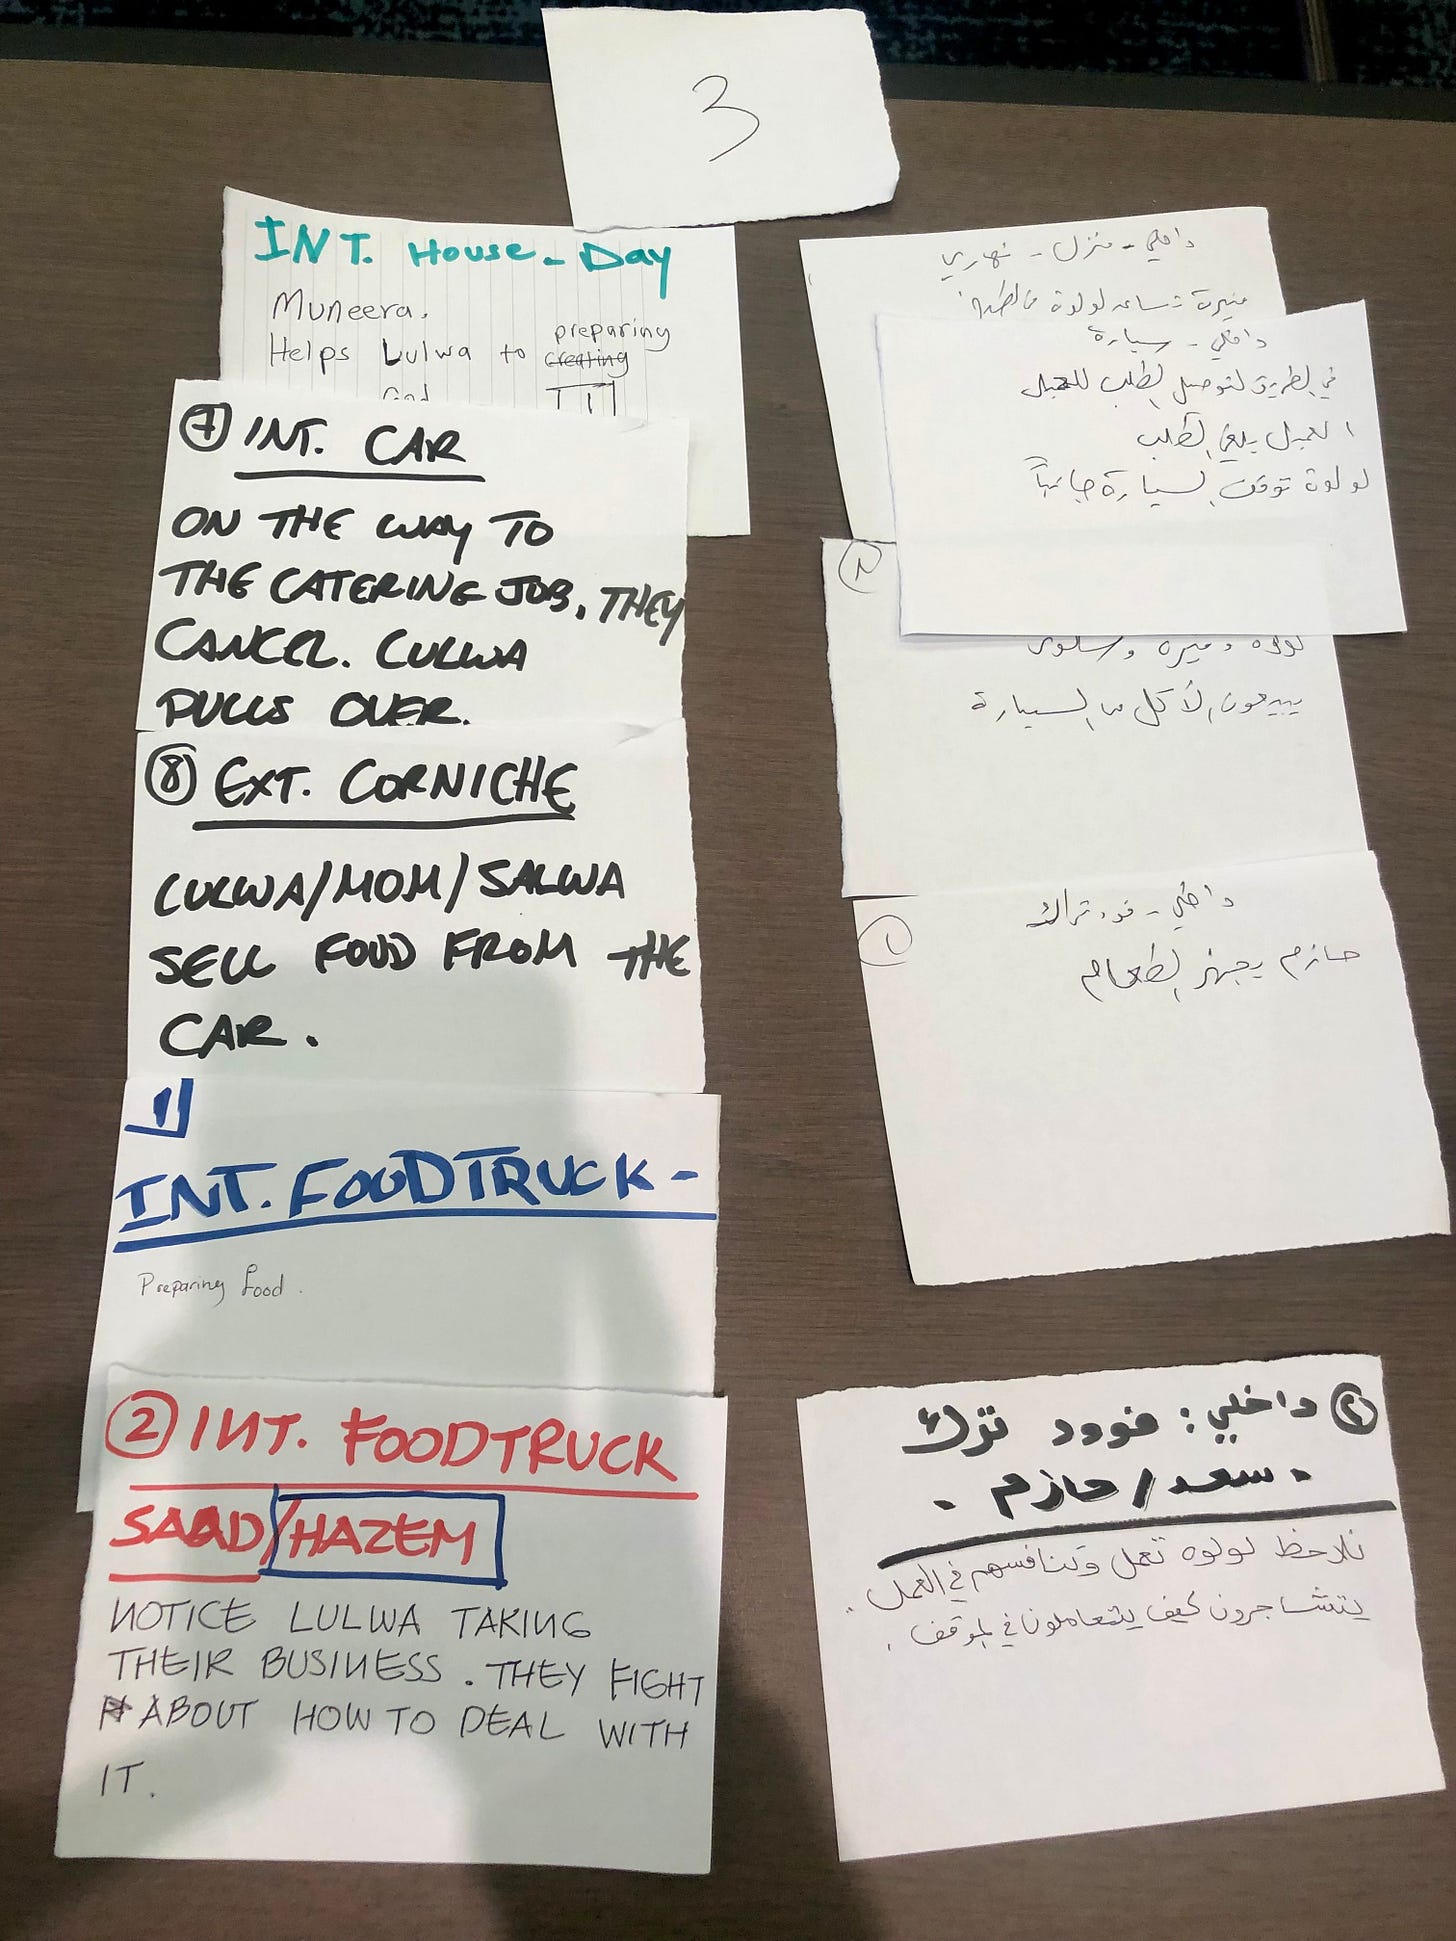 3
INT. House - Day
Muneera.
Helps Lulwa to creating preparing
7 INT. CAR
ON THE WAY TO
THE CATERING JOB, THEY
CANCEL. LULWA
PULLS OVER.
8 EXT. CORNICHE
LULWA/MOM/SALWA
SELL FOOD FROM THE
CAR.
1
INT. FOODTRUCK -
Preparing food.
2 INT. FOODTRUCK
SAAD/HAZEM
NOTICE LULWA TAKING
THEIR BUSINESS. THEY FIGHT
ABOUT HOW TO DEAL WITH
IT.
داخلي - منزل - نهاري
منيرة تساعد لولوة
داخلي - سيارة
في الطريق لتوصيل الطلب للعميل
العميل يلغي الطلب
لولوة توقف السيارة جانباً
٨
لولوة ومنيرة وسلوى
يبيعون الأكل من السيارة
١
داخلي - فود تراك
حازم يجهز الطعام
٢ داخلي: فوود ترك
. سعد/حازم .
نلاحظ لولوه تعمل وتنافسهم في العمل.
يتشاجرون كيف يتعاملون في الموقف.